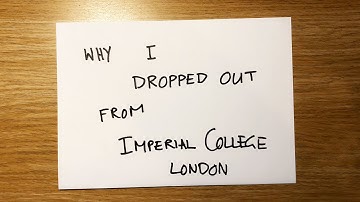 WHY I
DROPPED OUT
FROM
IMPERIAL COLLEGE
LONDON